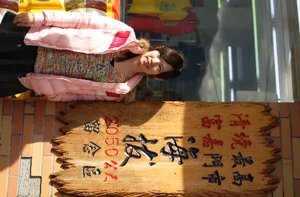 清境富嘉
最高門市
海拔
2050公尺
留念區